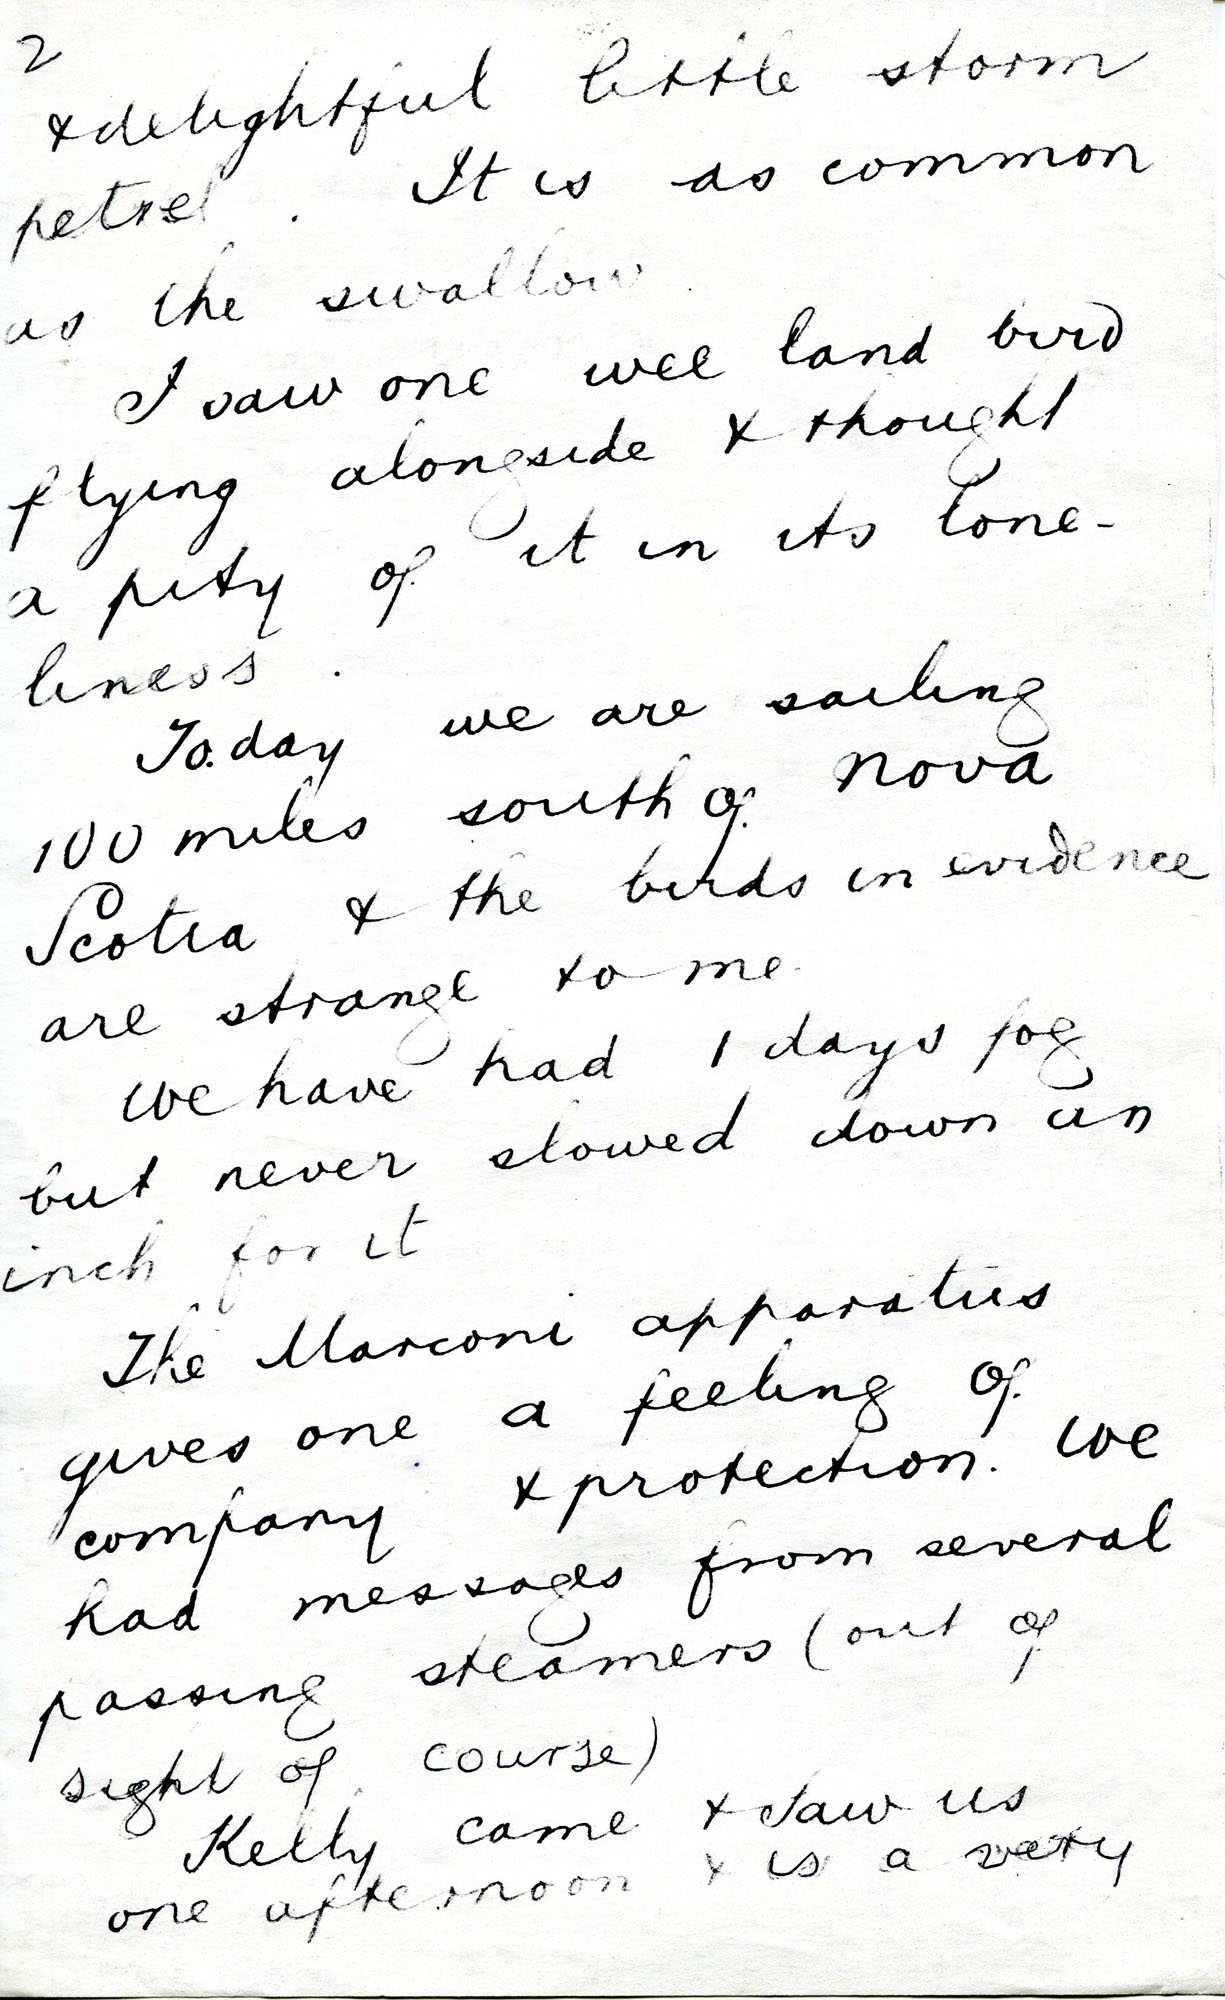 2
& delightful little storm
petrel. It is as common
as the swallow.
I saw one wee land bird
flying alongside & thought
a pity of it in its lone-
liness.
To.day we are sailing
100 miles south of Nova
Scotia & the birds in evidence
are strange to me.
We have had 1 days fog
but never slowed down an
inch for it
The Marconi apparatus
gives one a feeling of
company & protection. We
had messages from several
passing steamers (out of
sight of course)
Kelly came & saw us
one afternoon & is a very